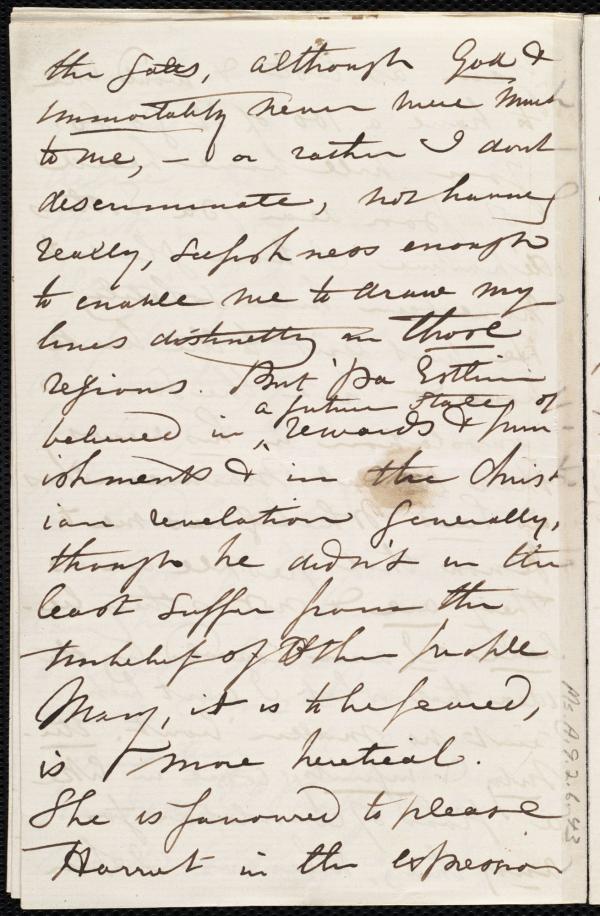 the gates, although God &
Immortality never were much
to me, — or rather I dont
descriminate, not having
really, selfishness enough
to enable me to draw my
lines distinctly in those
regions. But Pa Estlin
a future state of
believed in ^ rewards & pun
ishments & in the Christ
ian revelation generally,
though he didn't in the
least suffer from the
unbelief of other people
Mary, it is to be feared,
is more heretical.
She is favoured to please
Harriet in the expression
Ms.A.9.2.6.43